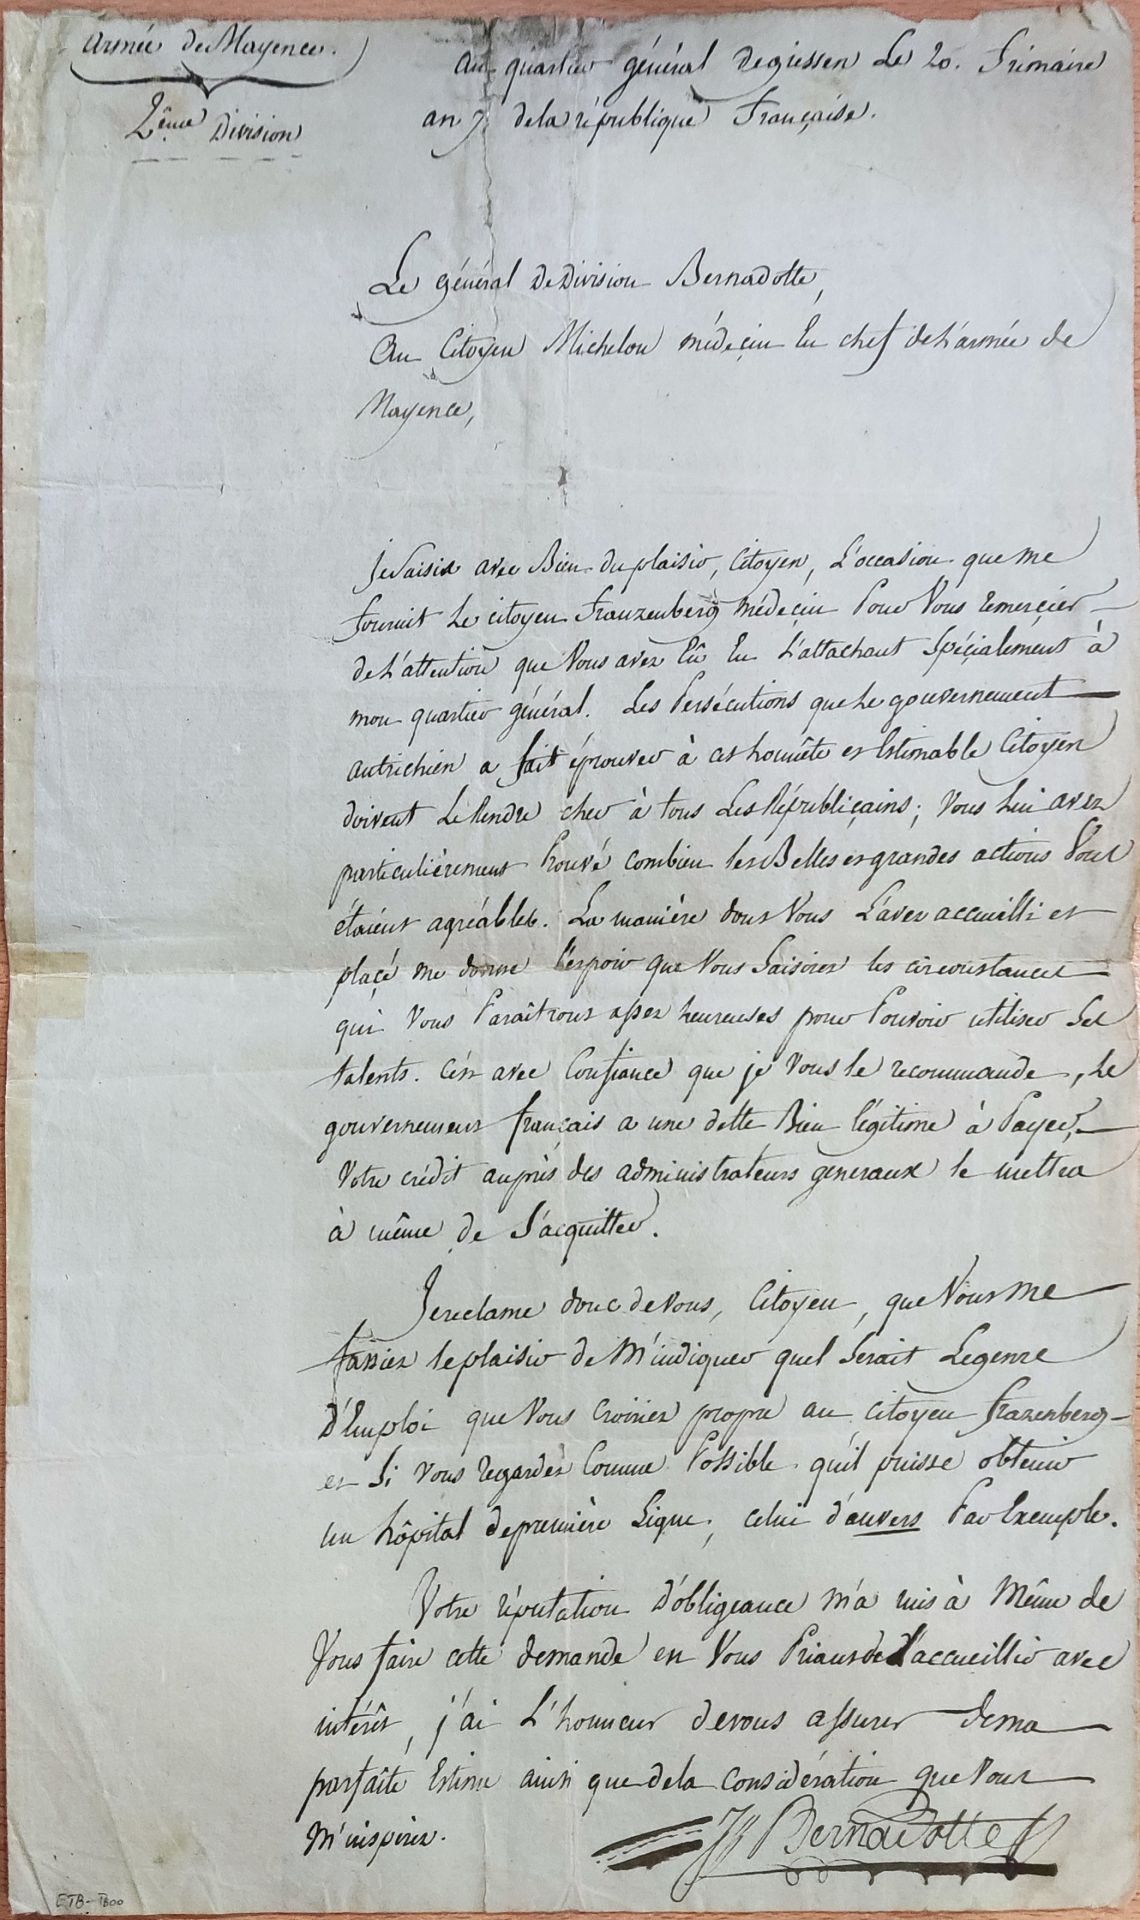 Armée de Mayence.
2ème Division
au quartier général de giessen Le 20. frimaire
an 7 de la république française.
Le général de Division Bernadotte,
Au Citoyen Michelon médeçin En chef de L'armée de
Mayence,
Je Saisis avec Bien du plaisir, Citoyen, L'occasion que me
fournit Le citoyen franzenberg médeçin Pour Vous remerçier
de L'attention que Vous avez Eû En L'attachant Spéçialement à
mon quartier général. Les Persécutions que Le gouvernement
autrichien a fait éprouver à cet honnête et Estimable Citoyen
doivent Le Rendre cher à tous Les Républiçains; Vous Lui avez
particulièrement Prouvé combien les Belles et grandes actions Vous
étaient agréables. La manière dont Vous L'avez accueilli et
plaçé me donne l'espoir que Vous Saisirez les circonstances
qui Vous Paraîtront assez heureuses pour Pouvoir utiliser Ses
talents. C'est avec Confiance que je Vous le recommande, Le
gouvernement français a une dette Bien légitime à Payer,
Votre crédit auprès des administrateurs generaux le mettra
à même de S'acquitter.
Je reclame donc de vous, Citoyen, que Vous me
fassiez le plaisir de M'indiquer quel Serait Le genre
d'Emploi que Vous Croiriez propre au Citoyen frazenberg
et Si Vous regardez Comme Possible qu'il puisse obtenir
un hôpital de première Ligne, celui d'anvers Par Exemple.
Votre réputation d'obligeance m'a mis à Même de
Vous faire cette demande en Vous Priant de L'accueillir avec
intérêt, j'ai L'honneur de vous assurer de ma
parfaite Estime ainsi que de la considération que Vous
M'inspirez.
JB Bernadotte
ETB-1800